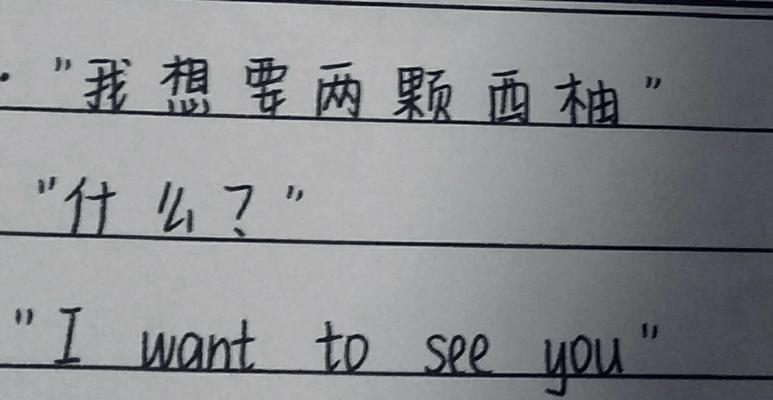 · "我想要两颗西柚"
"什么？"
"I want to see you"